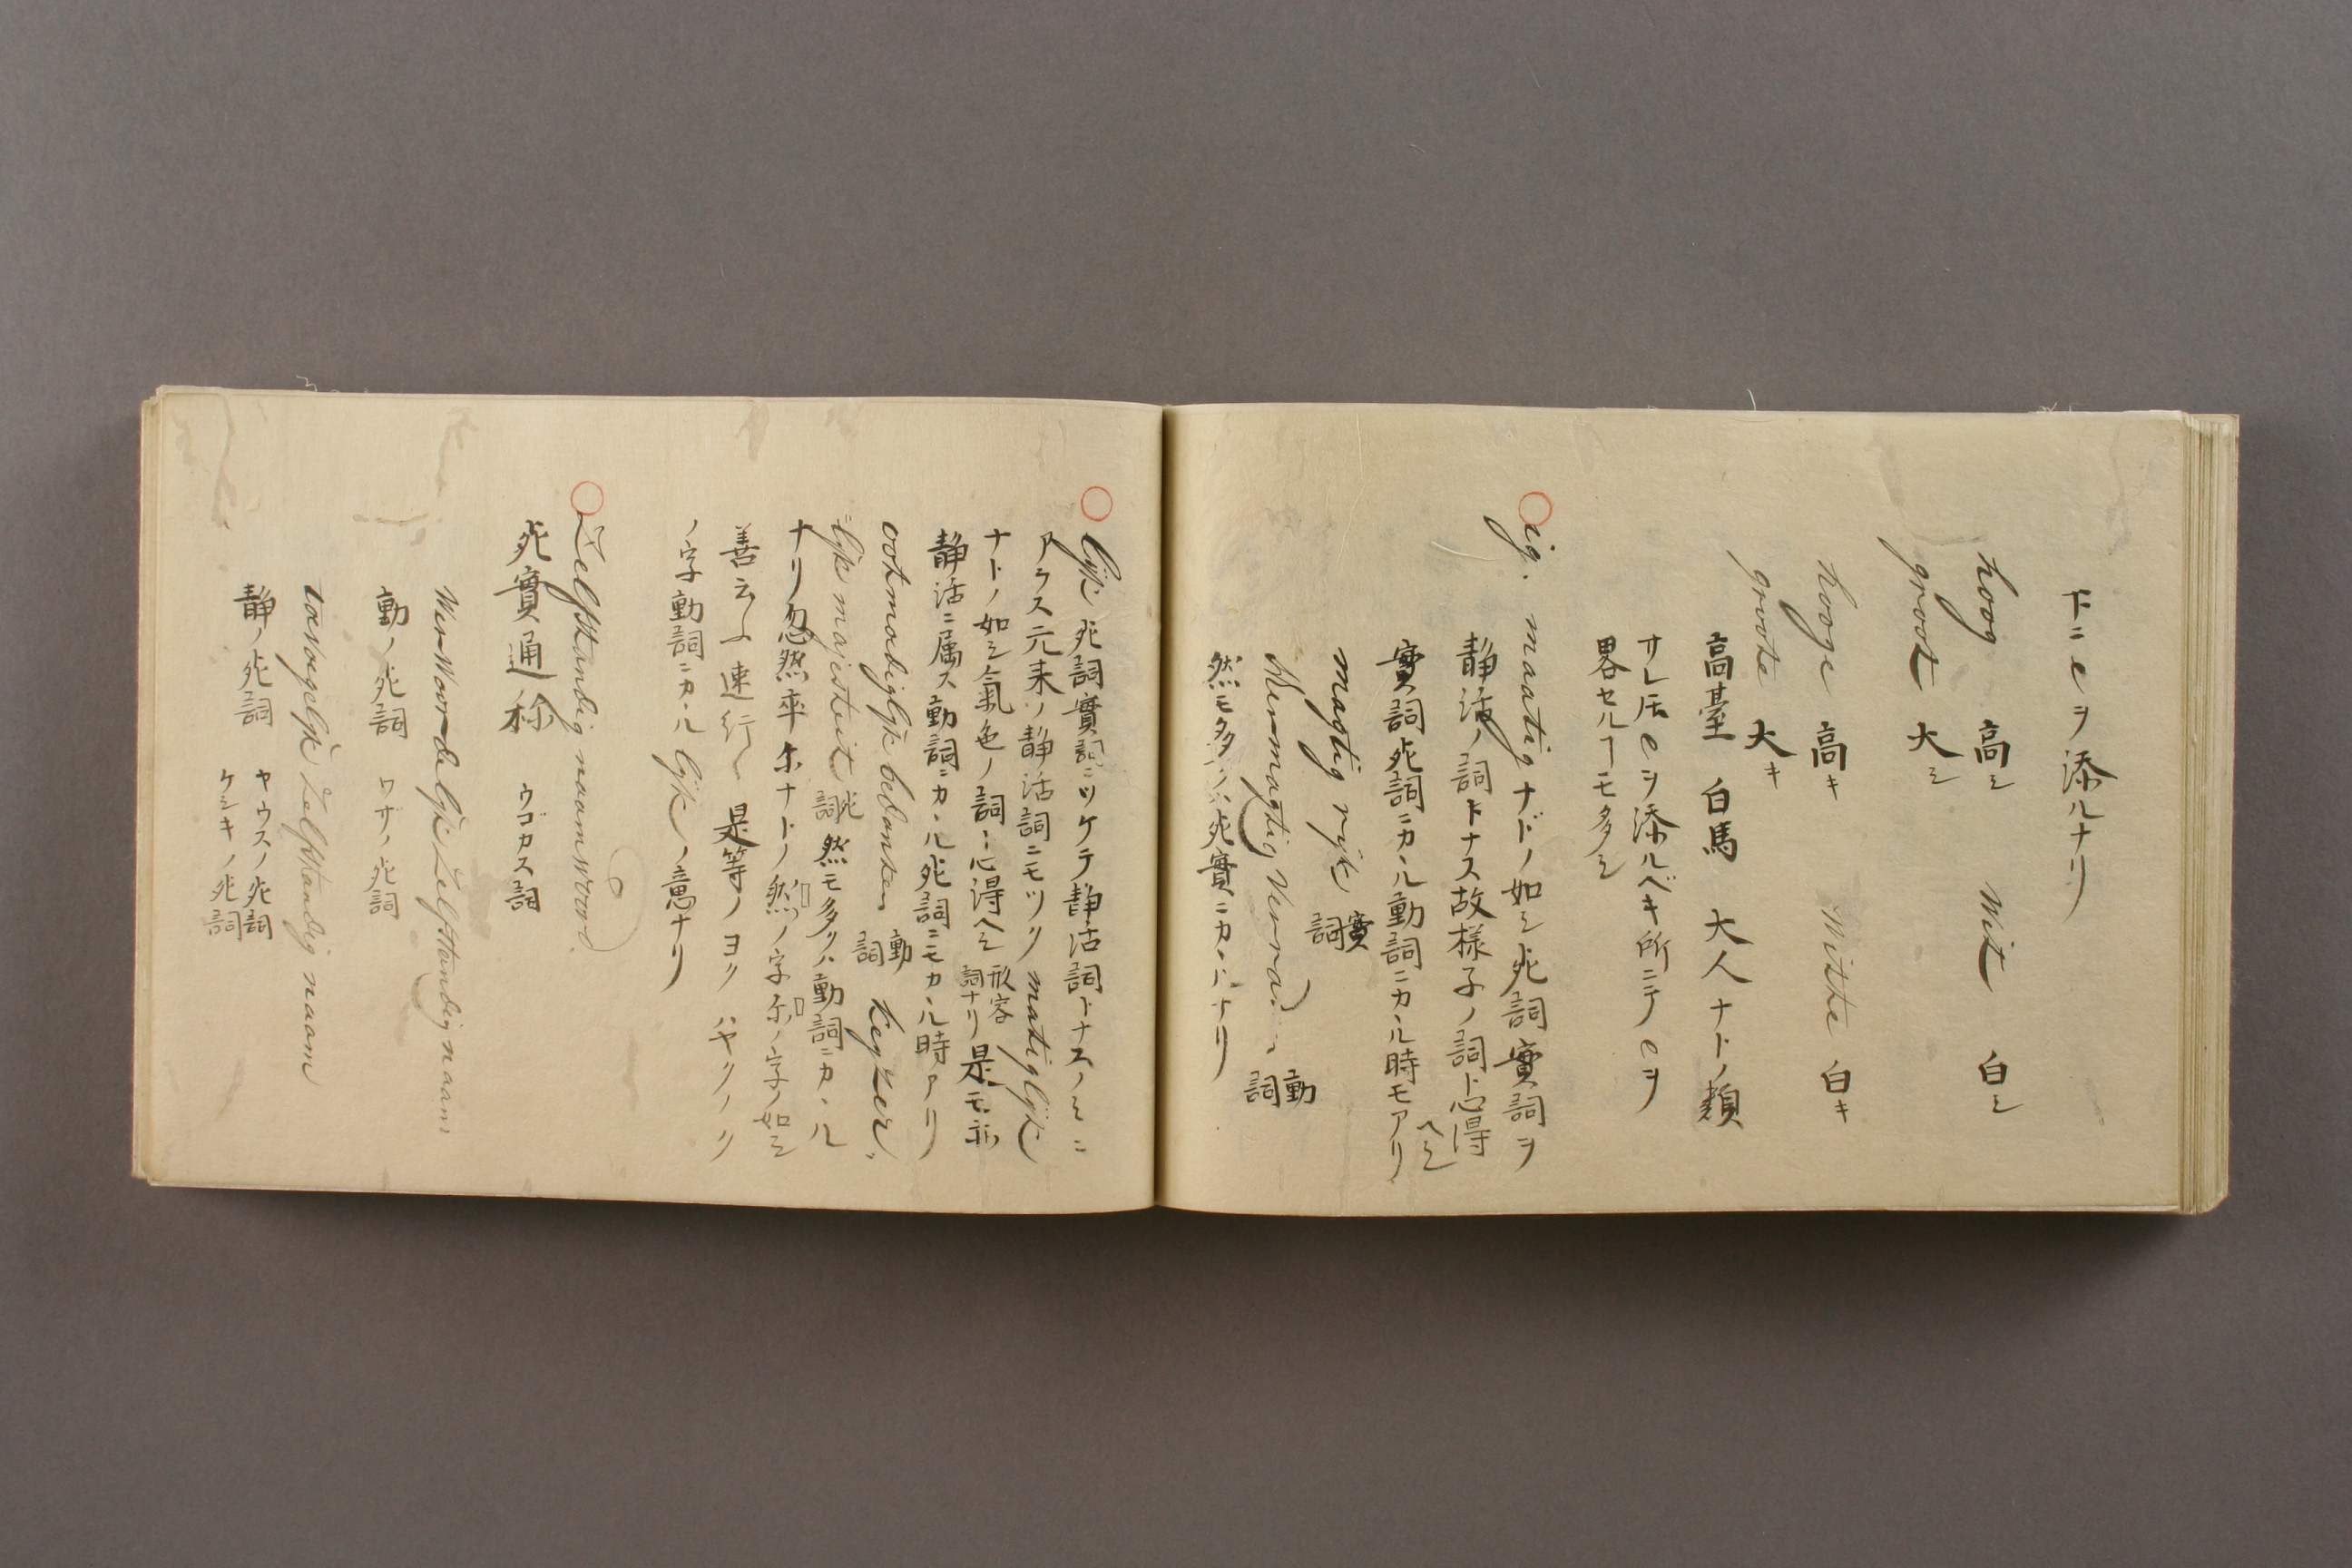 下ニeヲ添ルナリ
hoog 高シ wit 白シ
groot 大シ
hooge 高キ witte 白キ
groote 大キ
高臺 白馬 大人ナトノ類
サレ𪜈eヲ添ルベキ所ニテeヲ
畧セルヿモ多シ
○ig. maatigナドノ如シ死詞實詞ヲ
静活ノ詞トナス故様子ノ詞ト心得ヘシ
實詞死詞ニカヽル動詞ニカヽル時モアリ
magtig rijk 實詞
動詞
然モ多クハ死實ニカヽルナリ
○lijk 死詞實詞ニツケテ静活詞トナスノミニ
アラス元来ノ静活詞ニモツク matiglijk
ナトノ如シ氣色ノ詞ト心得ヘシ形容詞ナリ是モ亦
静活ニ属ス動詞ニカヽル死詞ニモカヽル時アリ
ootmoediglijk bedanken 動詞 keyzer
lijk majesteit 死詞 然モ多クハ動詞ニカヽル
ナリ忽然卒尓ナトノ然ノ字尓ノ字ノ如シ
善云フ速行ク是等ノヨクハヤクノク
ノ字動詞ニカヽルlijkノ意ナリ
○Zelfstandig naamwoord.
死實通称 ウゴカス詞
Zelfstandig naam
動ノ死詞 ワザノ死詞
Zelfstandig naam
静ノ死詞 ヤウスノ死詞
ケシキノ死詞